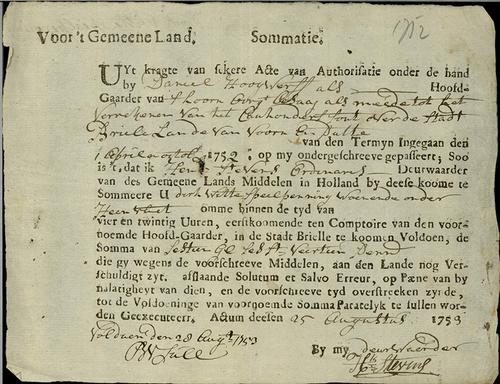 1752
Voor 't Gemeene Land, Sommatie.
UYt kragte van sekere Acte van Authorisatie onder de hand
by Daniel Hooywerff als Hoofd-
Gaarder van 't Hoorn als mede tot het
van het over de Stadt
Brielle Lande van Voorn
van den Termyn Ingegaan den
1 April 1752; op my ondergeschreeve gepasseert; Soo
is 't, dat ik Stevens Ordinaris Deurwaarder
van des Gemeene Lands Middelen in Holland by deese koome te
Sommeere U dirk witte Speelpenning Woonende onder
omme binnen de tyd van
vier en twintig Uuren, eerstkomende ten Comptoire van den voor-
noemde Hoofd-Gaarder, in de Stadt Brielle te koomen Voldoen, de
Somma van Sestien
die gy wegens de voorschreeve Middelen, aan den Lande nog Ver-
schuldigt zyt, asslaande Solutum et Salvo Erreur, op Pæne van by
nalatigheyt van dien, en de voorschreeve tyd overstreeken zynde,
tot de Voldoeninge van voornoemde Somma Paratelyk te sullen wor-
den Geexecuteert. Actum deesen 25 Augustus 1753
Voldaen den 28 Augt 1753
By my deurwaarder
Stevens